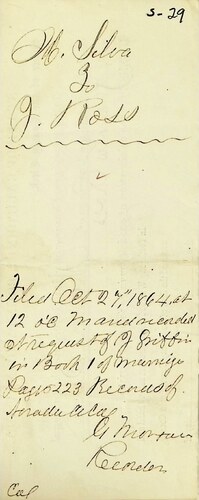 S-29
M. Silva
To
J. Ross
Filed Oct 27, 1864, at
12 o'c M and recorded
at request of J Griffin
in Book 1 of Marriage
Page 223 Records of
Cal
G
Recorder
Cal